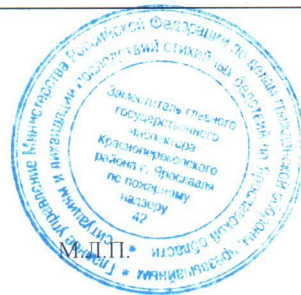 Главное управление Министерства Российской Федерации по делам гражданской обороны, чрезвычайным ситуациям и ликвидации последствий стихийных бедствий по Ярославской области *
Заместитель главного
государственного
инспектора
Красноперекопского
района г. Ярославля
по пожарному
надзору
42
М.Л.П.